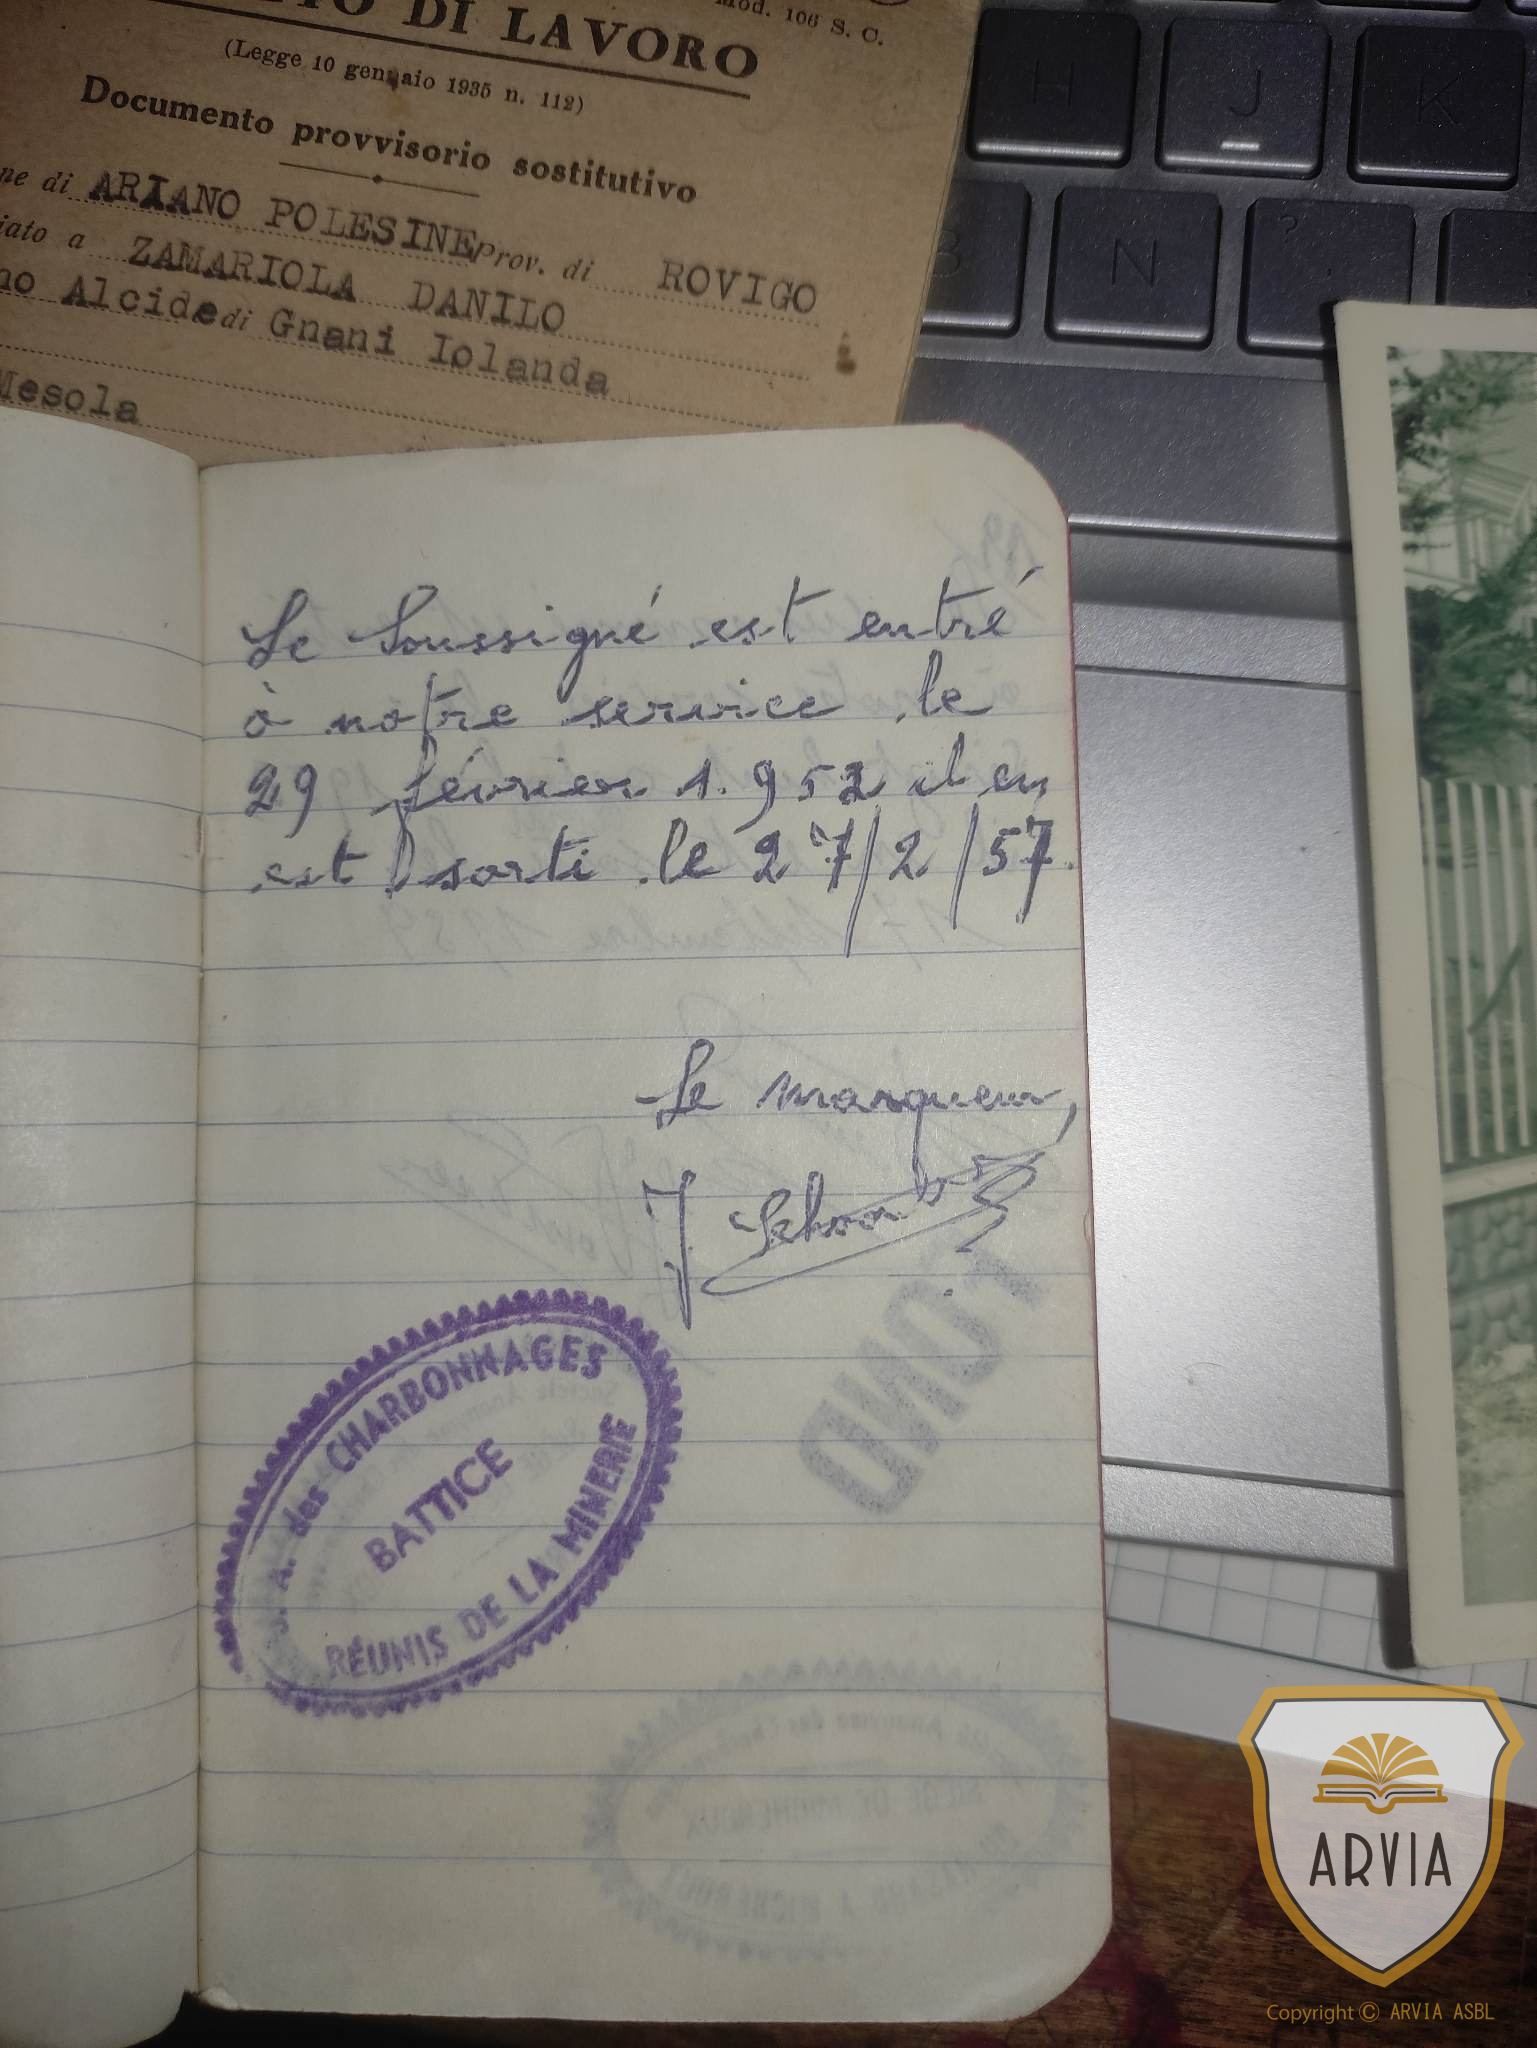 Mod. 106 S. C.
DI LAVORO
(Legge 10 gennaio 1935 n. 112)
Documento provvisorio sostitutivo
ne di ARIANO POLESINE Prov. di ROVIGO
iato a ZAMARIOLA DANILO
no Alcide di Gnani Iolanda
Mesola
H J K
B N ?
Le Soussigné est entré
à notre service le
29 février 1.952 il en
est sorti le 27/2/57.
Le marqueur,
J
FOND
S. A. des CHARBONNAGES
BATTICE
RÉUNIS DE LA MINERIE
ARVIA
Copyright © ARVIA ASBL